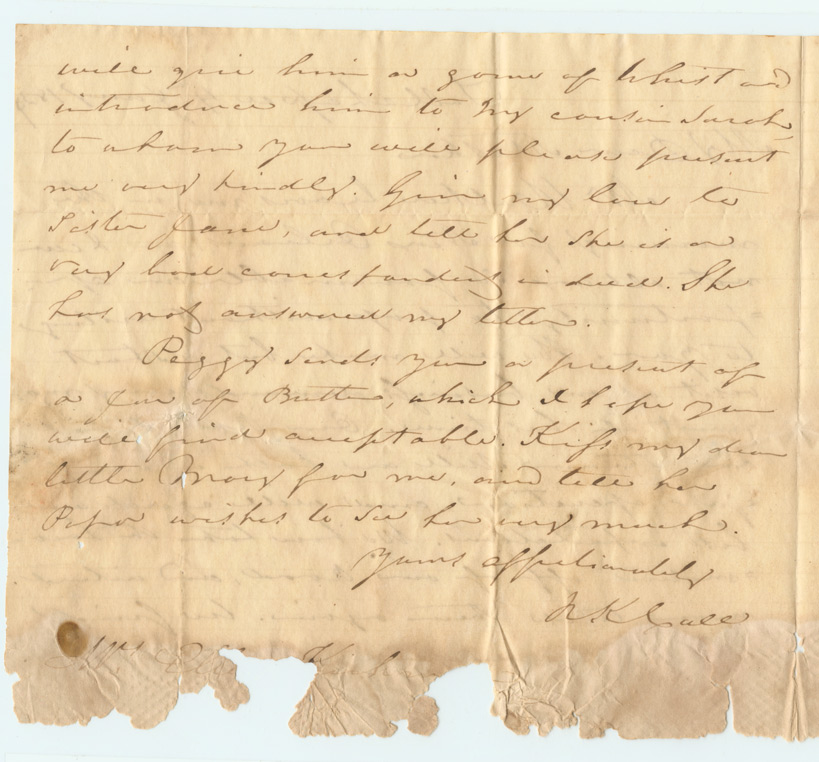 will give him a game of Whist and
introduce him to my cousin Sarah
to whom you will please present
me very kindly. Give my love to
Sister Jane, and tell her she is a
very bad correspondent indeed. She
has not answered my letter.
Peggy sends you a present of
a Jar of Butter, which I hope you
will find acceptable. Kiss my dear
little Mary for me, and tell her
Papa wishes to see her very much.
Yours affectionately
R K Call
Mrs